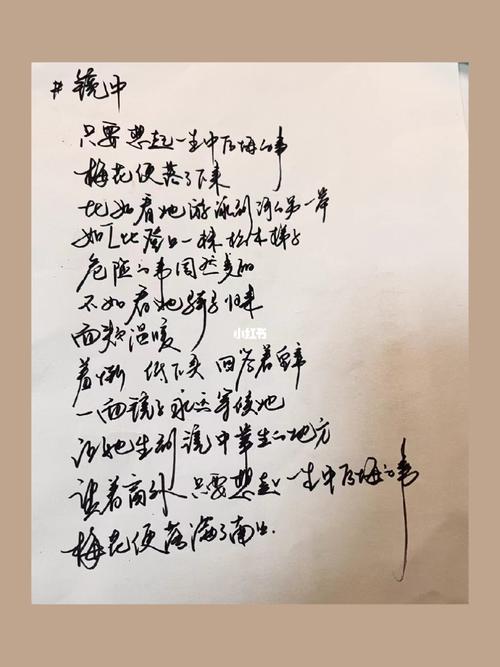 # 镜中
只要想起一生中后悔的事
梅花便落了下来
比如看她游泳到河的另一岸
比如登上一株松木梯子
危险的事固然美丽
不如看她骑马归来
面颊温暖
羞惭 低下头 回答着皇帝
一面镜子永远等候她
让她坐到镜中常坐的地方
望着窗外 只要想起一生中后悔的事
梅花便落满了南山.
小红书